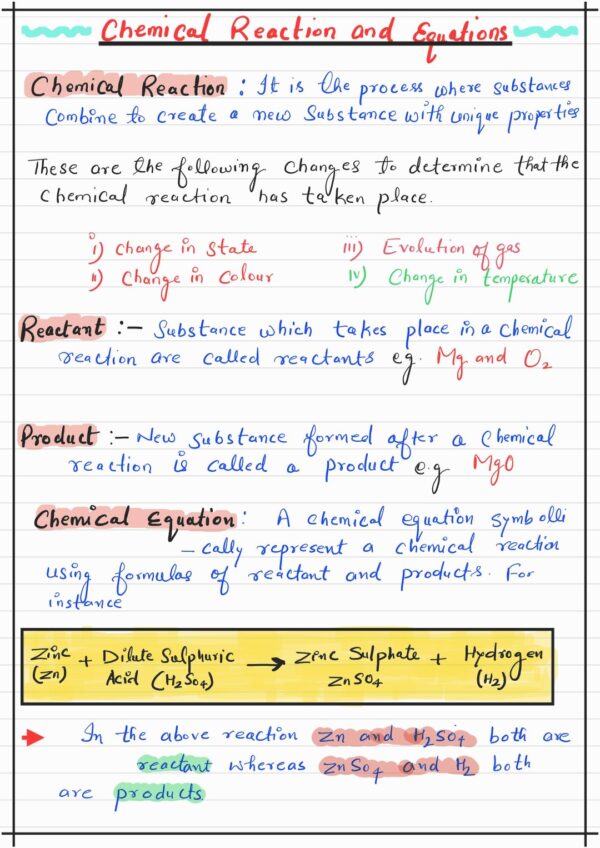 Chemical Reaction and Equations
Chemical Reaction : It is the process where substances
Combine to create a new Substance with unique properties
These are the following changes to determine that the
Chemical reaction has taken place.
i) change in state
iii) Evolution of gas
ii) Change in Colour
iv) Change in temperature
Reactant :- Substance which takes place in a chemical
reaction are called reactants eg. Mg and O₂
Product :- New Substance formed after a Chemical
reaction is called a product e.g MgO
Chemical Equation : A chemical equation symbolli
- cally represent a chemical reaction
using formulas of reactant and products. For
instance
Zinc + Dilute Sulphuric → Zinc Sulphate + Hydrogen
(Zn) Acid (H₂SO₄) ZnSO₄ (H₂)
In the above reaction Zn and H₂SO₄ both are
reactant whereas ZnSO₄ and H₂ both
are products